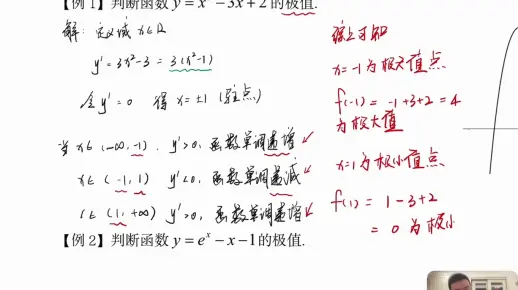 【例 1】判断函数 y = x³ - 3x + 2 的极值.
解: 定义域 x∈R
y' = 3x² - 3 = 3(x²-1)
令 y' = 0 得 x = ±1 (驻点)
当 x∈(-∞, -1). y' > 0, 函数单调递增
x∈(-1, 1) y' < 0, 函数单调递减
(∈(1, +∞) y' > 0, 函数单调递增
综上可知
x = -1 为极大值点
f(-1) = -1+3+2 = 4
为极大值
x = 1 为极小值点
f(1) = 1-3+2
= 0 为极小
【例 2】判断函数 y = eˣ - x - 1 的极值.